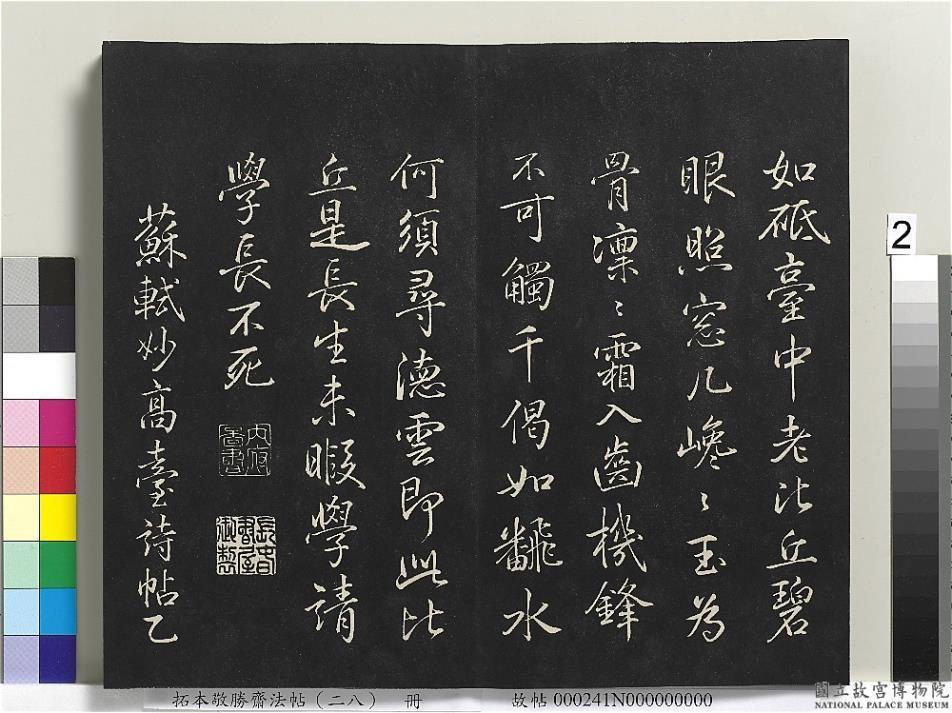 如砥臺中老比丘碧
眼照窓几巉〻玉為
骨凛〻霜入齒機鋒
不可觸千偈如飜水
何須尋德雲即此比
丘是長生未暇學請
學長不死
蘇軾妙高臺詩帖乙
2
拓本敬勝齋法帖（二八） 冊 故帖 000241N000000000
國立故宮博物院
NATIONAL PALACE MUSEUM